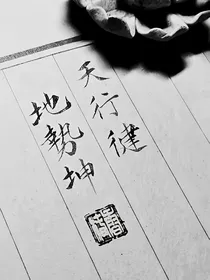 天行徤
地勢坤